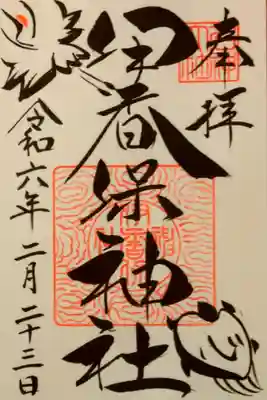 奉拝
伊香保神社
令和六年二月二十三日